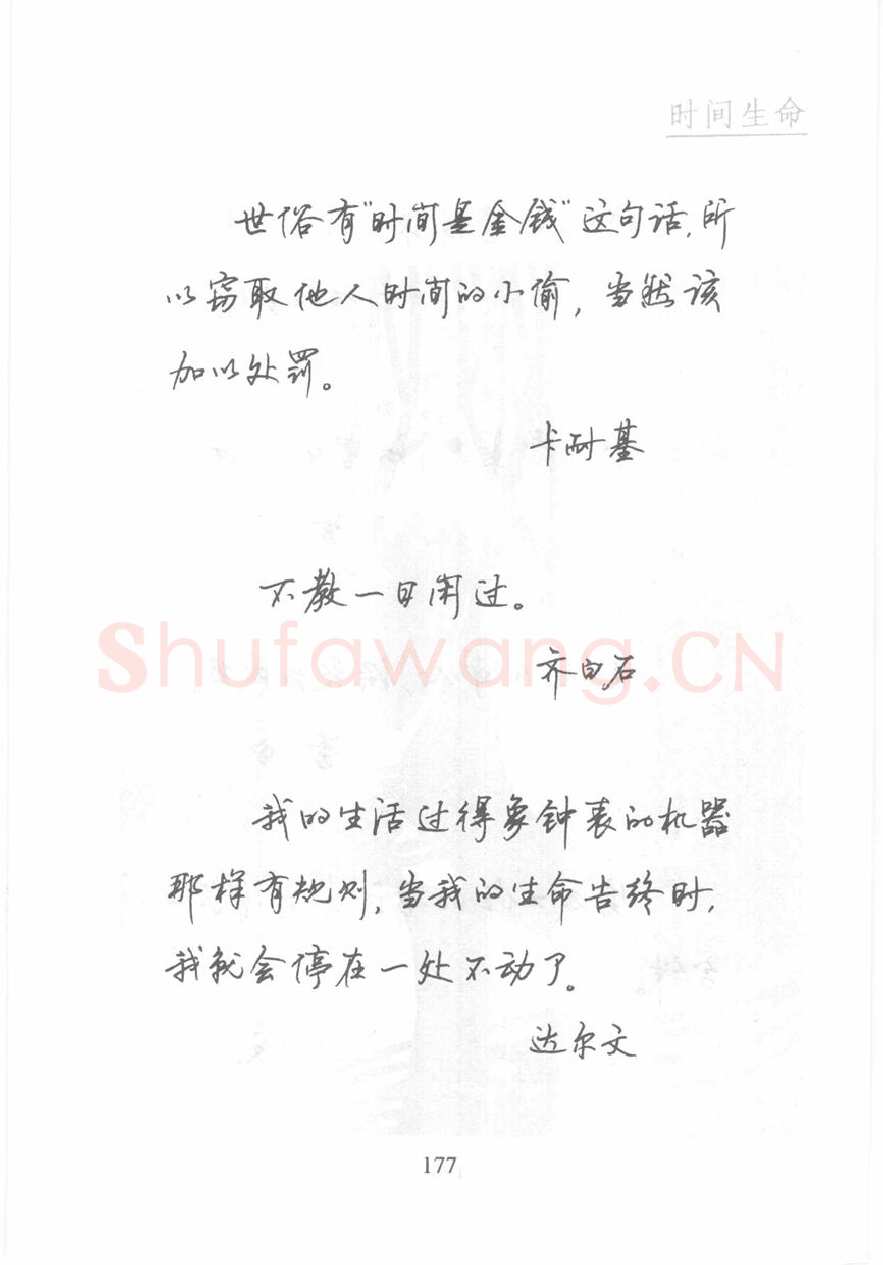 时间生命
世俗有"时间是金钱"这句话,所
以窃取他人时间的小偷,当然该
加以处罚。
卡耐基
不教一日闲过。
Shufawang.CN
齐白石
我的生活过得象钟表的机器
那样有规则,当我的生命告终时,
我就会停在一处不动了。
达尔文
177